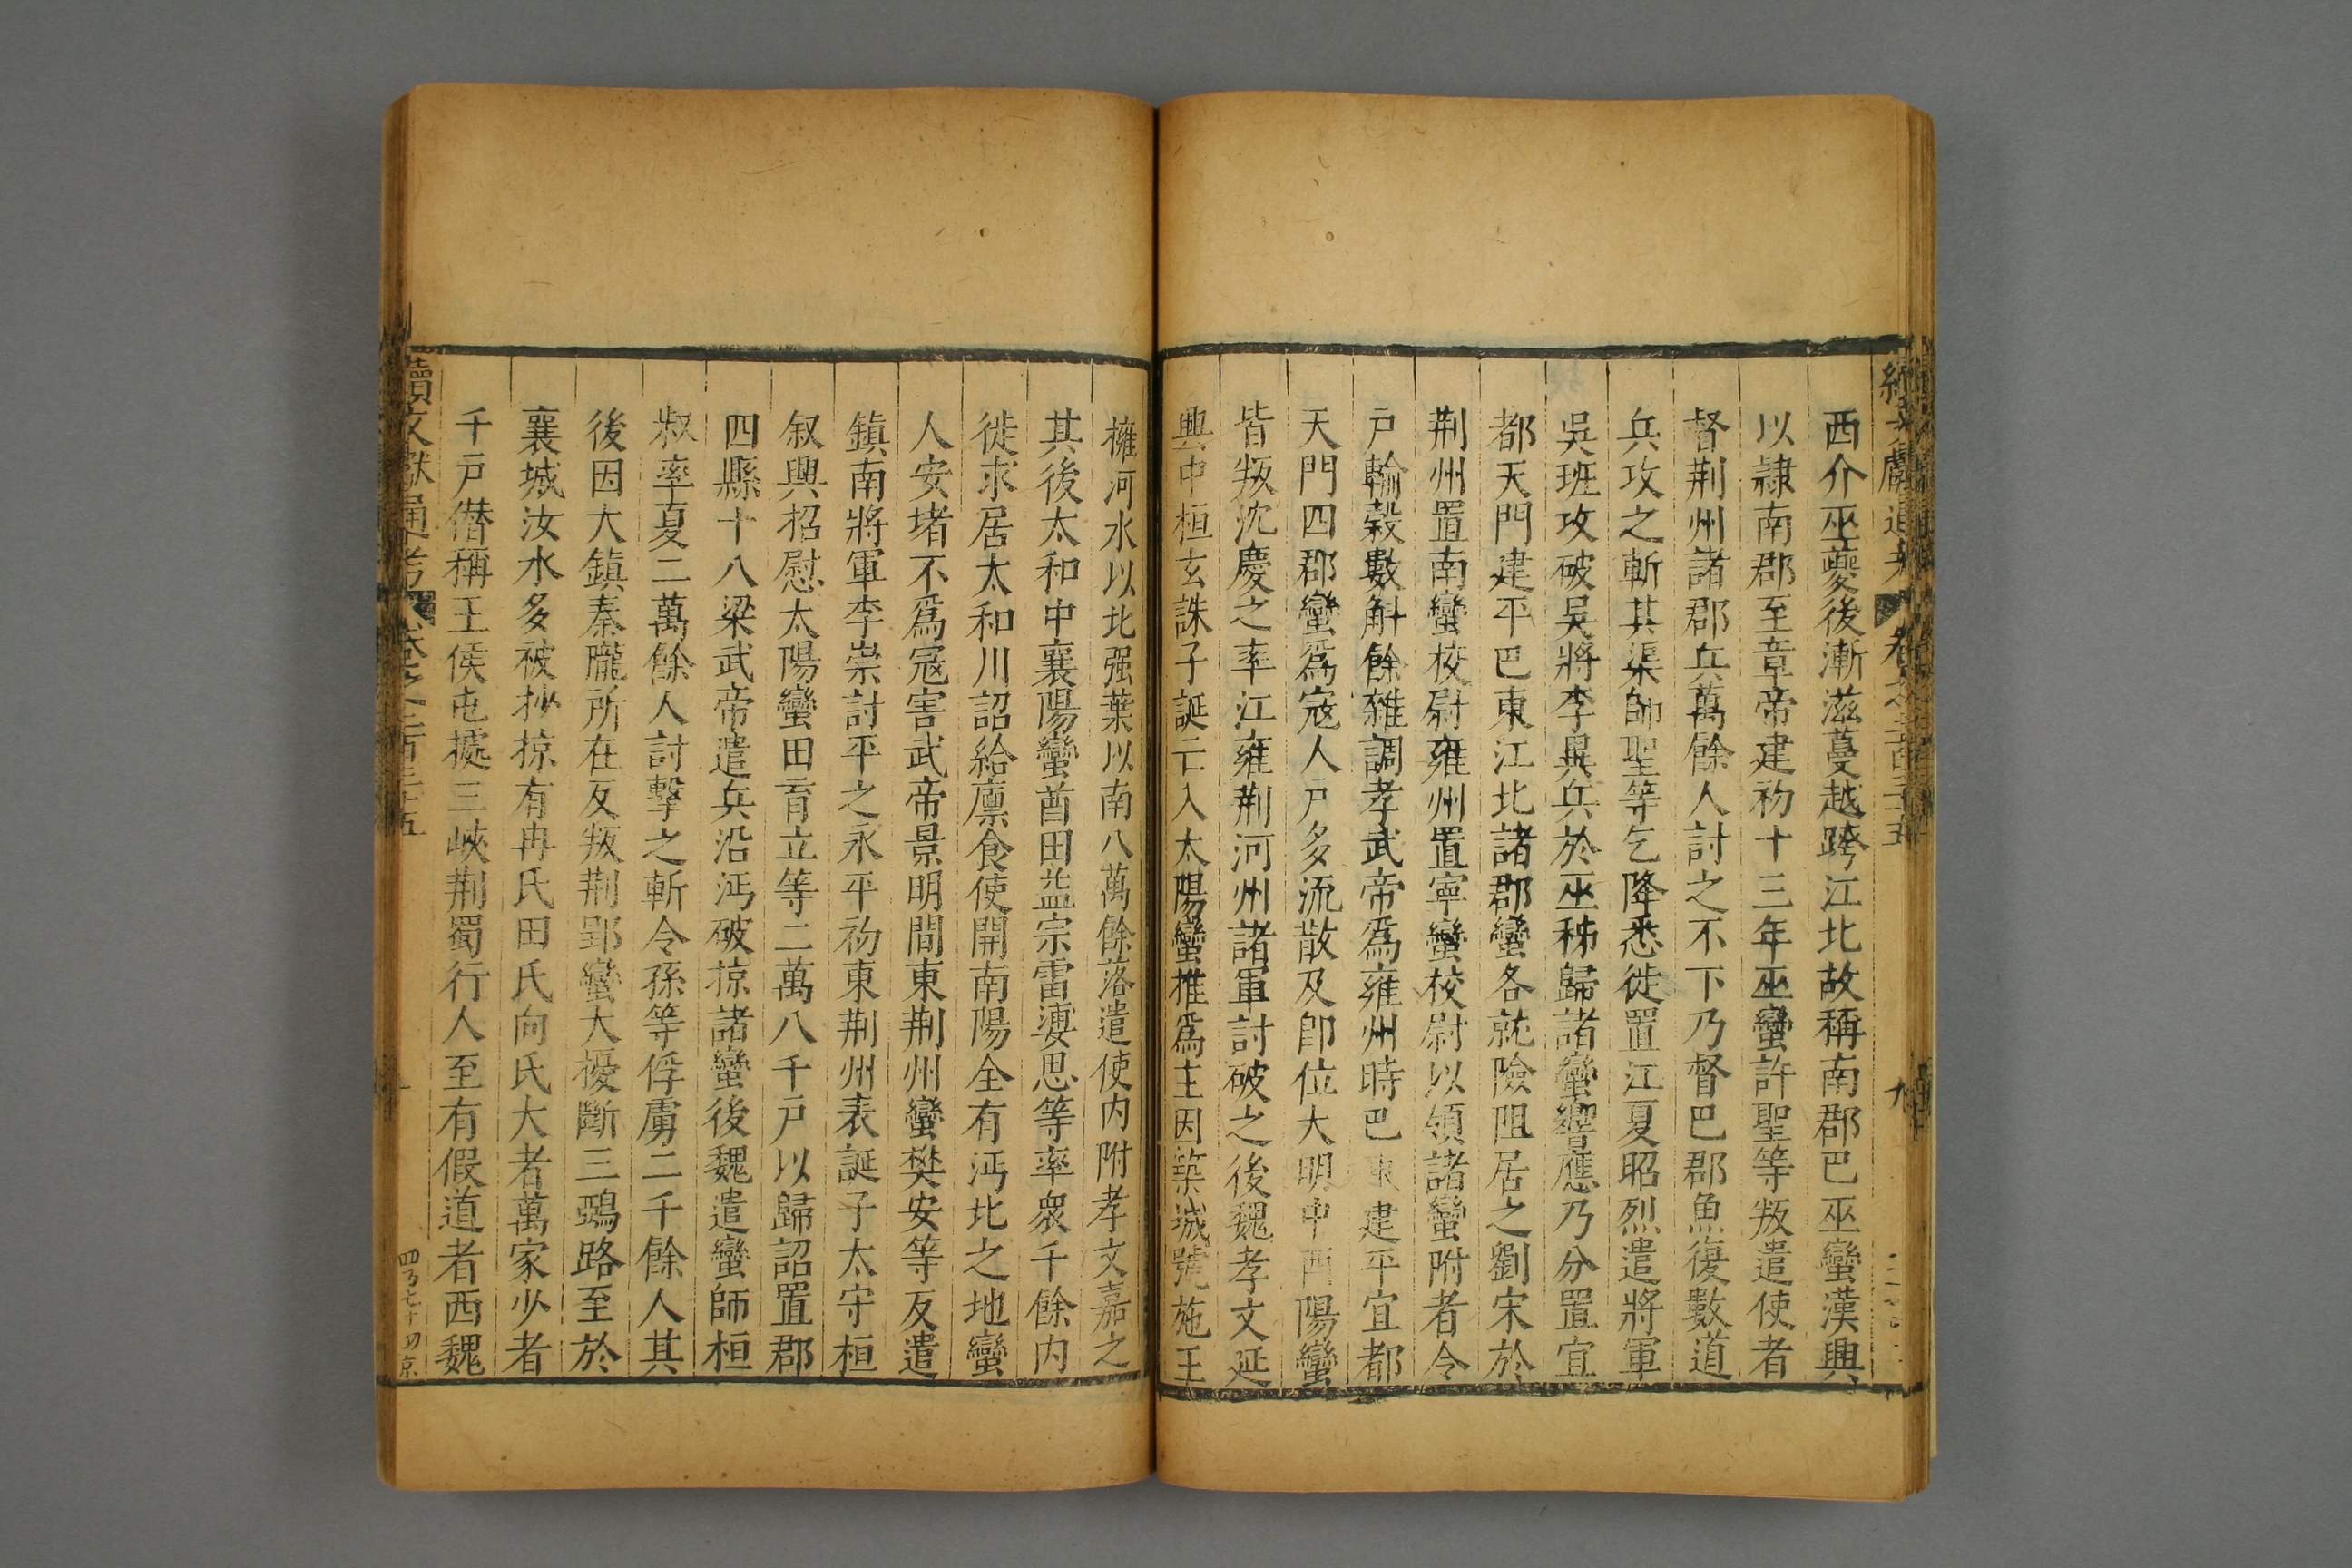 西介巫夔後漸滋蔓越跨江北故稱南郡巴巫蠻漢興
以隷南郡至章帝建初十三年巫蠻許聖等叛遣使者
督荆州諸郡兵萬餘人討之不下乃督巴郡魚復數道
兵攻之斬其渠帥聖等乞降悉徙置江夏昭烈遣將軍
吳班攻破吳將李異兵於巫秭歸諸蠻響應乃分置宜
都天門建平巴東江北諸郡蠻各就險阻居之劉宋於
荆州置南蠻校尉雍州置寧蠻校尉以領諸蠻附者令
戸輸穀數斛餘雜調孝武帝爲雍州時巴東建平宜都
天門四郡蠻爲寇人戸多流散及卽位大明中西陽蠻
皆叛沈慶之率江雍荆河州諸軍討破之後魏孝文延
興中桓玄誅子誕亡入太陽蠻推爲主因築城號施王
擁河水以北强葉以南八萬餘落遣使内附孝文嘉之
其後太和中襄陽蠻酋田益宗雷婆思等率衆千餘内
徙求居太和川詔給廪食使開南陽全有沔北之地蠻
人安堵不爲寇害武帝景明間東荆州蠻樊安等反遣
鎮南將軍李崇討平之永平初東荆州表誕子太守桓
叙興招慰太陽蠻田育立等二萬八千戸以歸詔置郡
四縣十八梁武帝遣兵沿沔破掠諸蠻後魏遣蠻帥桓
叔率夏二萬餘人討擊之斬令孫等俘虜二千餘人其
後因大鎮秦隴所在反叛荆郢蠻大擾斷三鵶路至於
襄城汝水多被抄掠有冉氏田氏向氏大者萬家少者
千戸僣稱王侯屯據三峽荆蜀行人至有假道者西魏
續文獻通考 卷之二百三十五